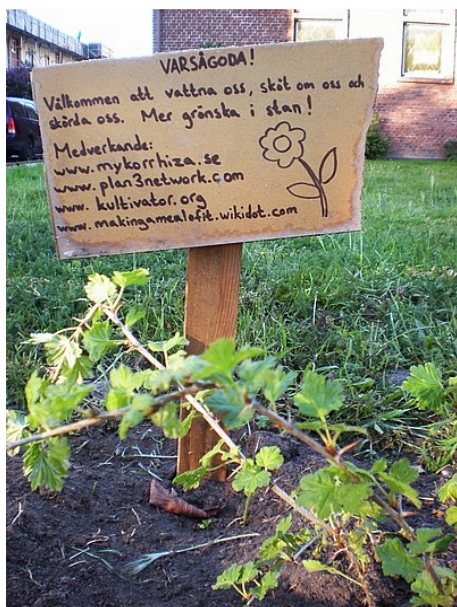 VARSÅGODA!
Välkommen att vattna oss, sköt om oss och
skörda oss. Mer grönska i stan!
Medverkande:
www.mykorrhiza.se
www.plan3network.com
www.kultivator.org
www.makingamealofit.wikidot.com